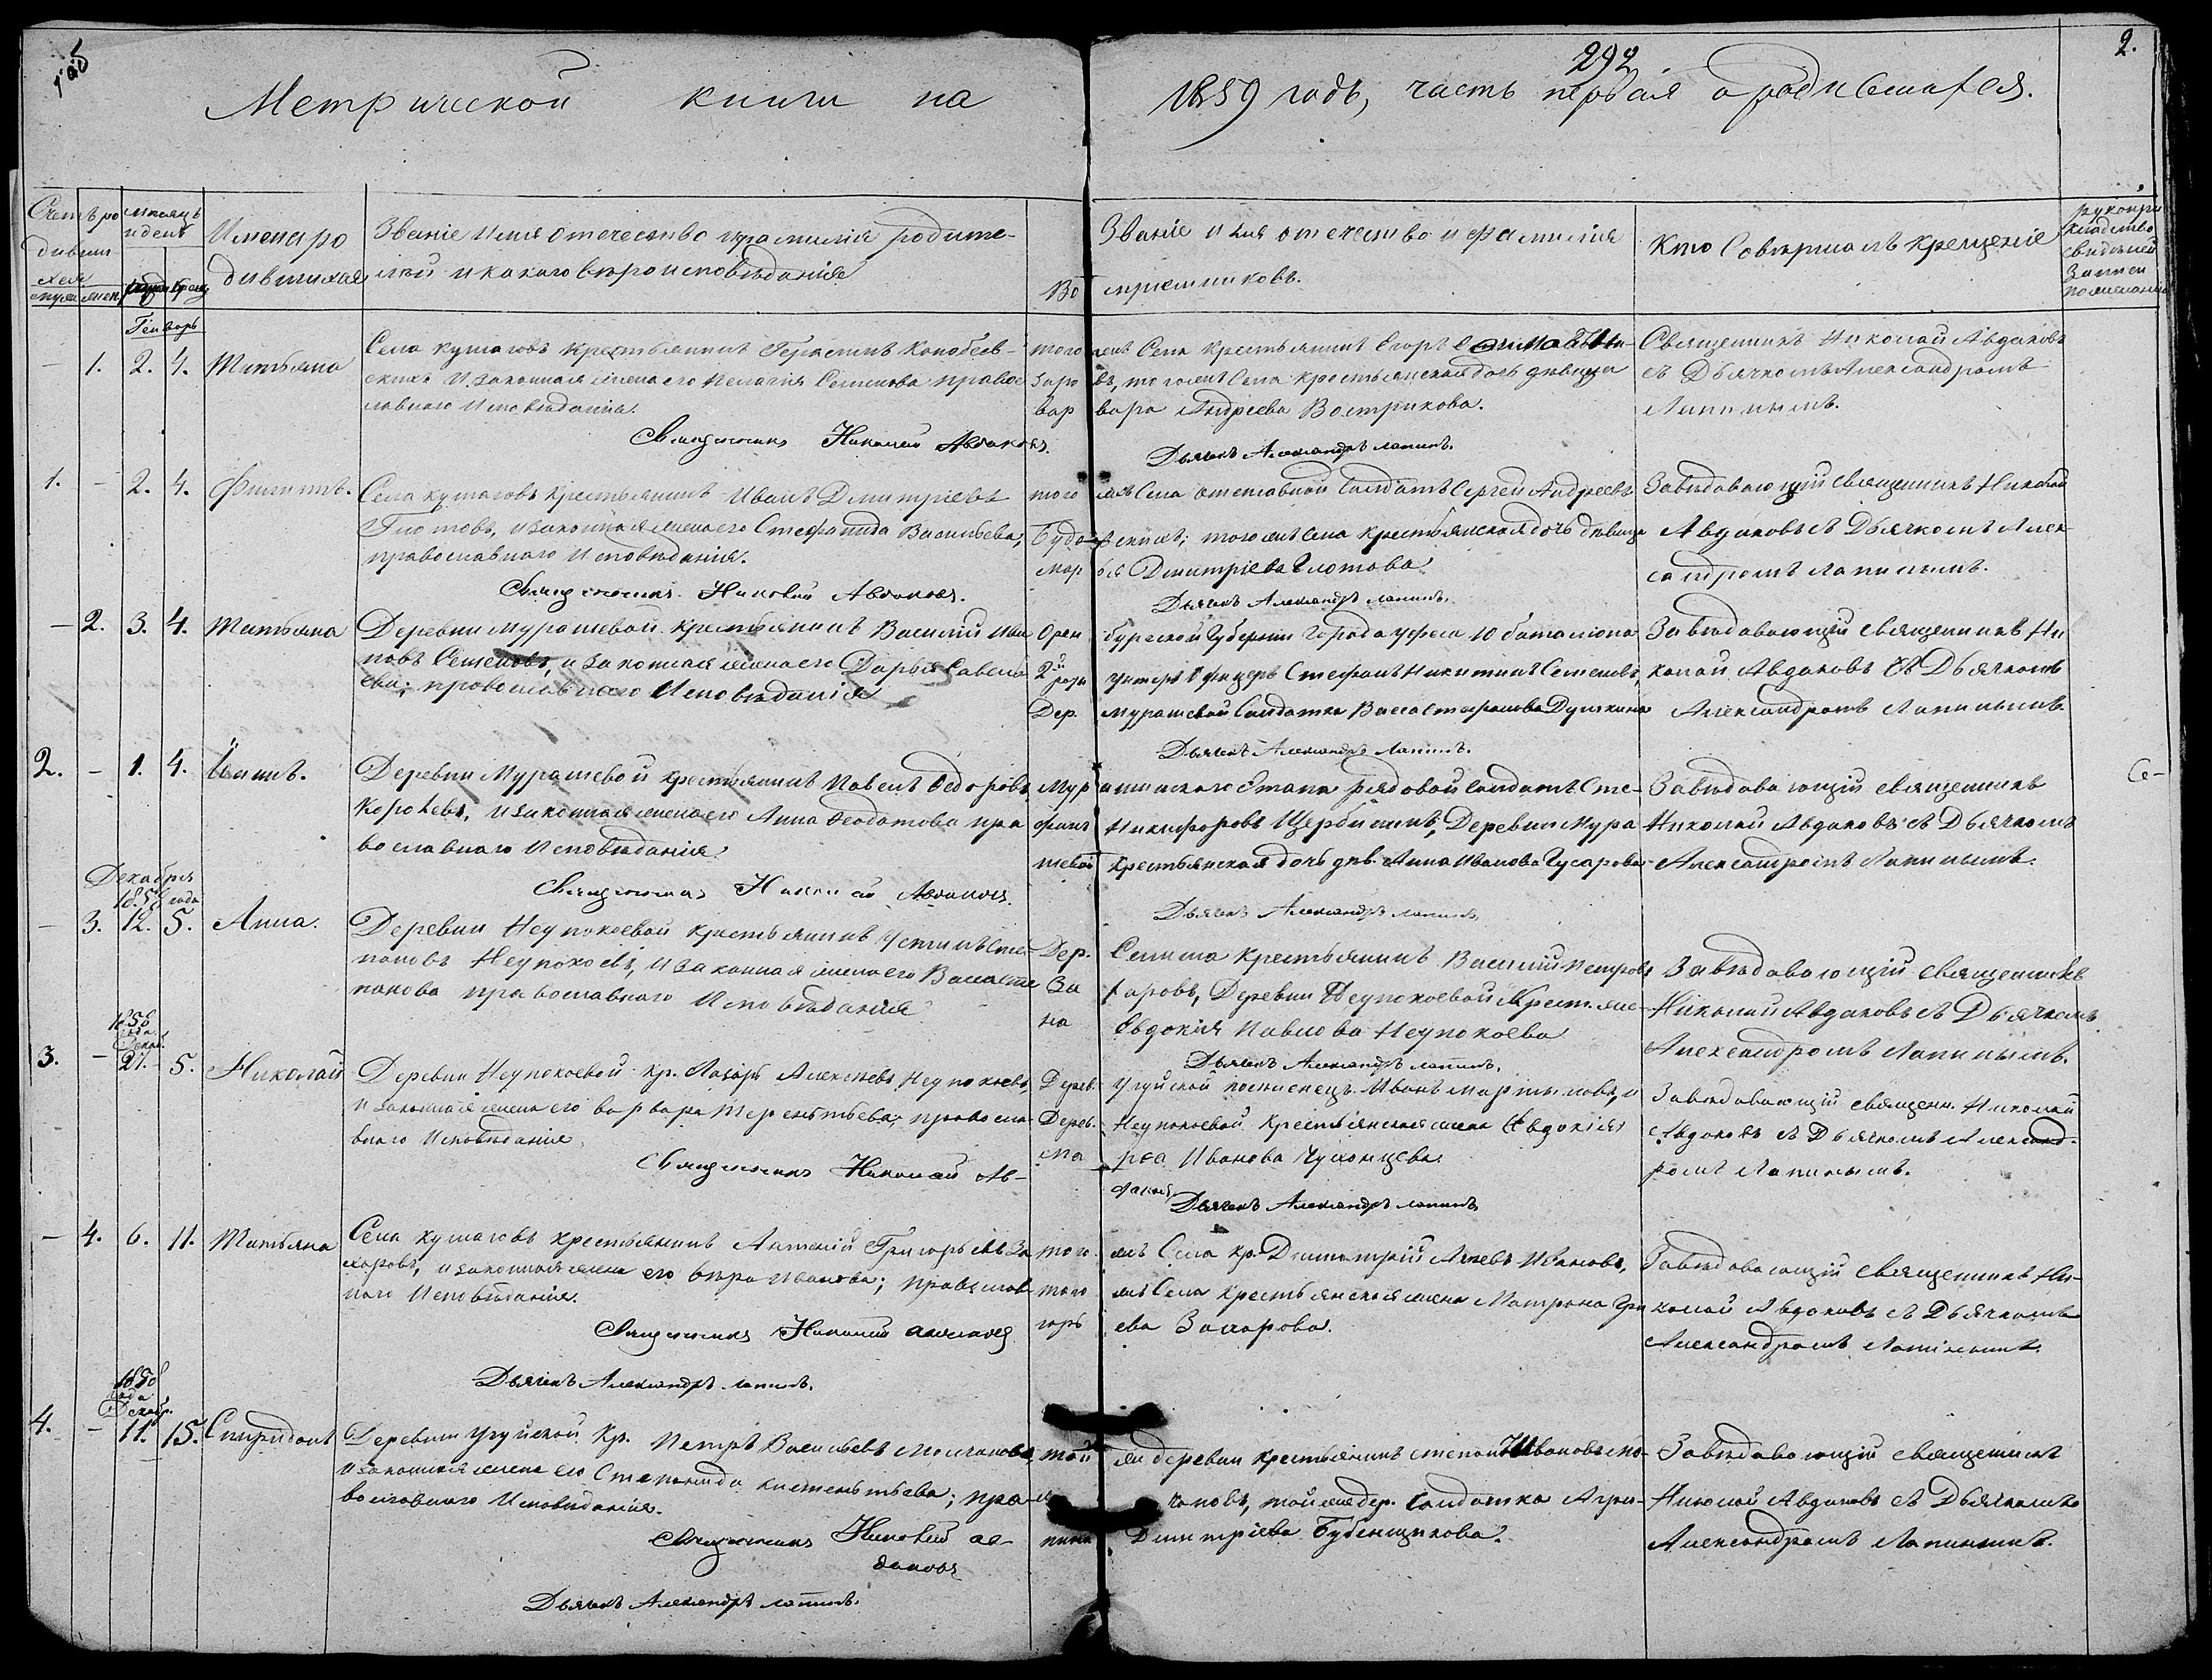 292
2.
Метрической книги на 1859 годъ, часть первая о родившихся.
Счетъ ро
дивши
хся
муж. жен.
месяцъ
и день
рожд. крещ.
Имена ро
дившихся
Званіе имя отечество и фамилія родите-
лей и какого вероисповѣданія
Званіе имя отечество и фамилія
Во спріемниковъ.
Кто совершалъ крещеніе
рукопри
кладство
свидѣтелей
записи
по желанію
Генварь
– 1. 2. 4. Татьяна
Села Кушаговъ крестьянинъ Герасимъ Конобеев-
скихъ и законная жена его Пелагія Семенова правос
лавнаго исповѣданія.
Священникъ Николай Авдаковъ.
того жъ Села крестьянинъ Егоръ
въ, того жъ Села крестьянская дочь девица
Вар вара Андреева Вострикова.
Дьячекъ Александръ Лапинъ.
Священникъ Николай Авдаковъ
съ Дьячкомъ Александромъ
Лапинымъ.
1. – 2. 4. Филиппъ.
Села Кушаговъ крестьянинъ Иванъ Дмитріевъ
Глотовъ, и законная жена его Стефанида Васильева,
православнаго исповѣданія.
Священникъ Николай Авдаковъ.
того жъ Села отставной солдатъ Сергей Андреевъ
того жъ Села крестьянская дочь девица
Мар ья Дмитріева Глотова
Дьячекъ Александръ Лапинъ.
Завѣдовающій Священникъ Николай
Авдаковъ съ Дьячкомъ Алек-
сандромъ Лапинымъ.
– 2. 3. 4. Татьяна
Деревни Мурашевой крестьянинъ Василій Ива
новъ Семеновъ, и законная жена его Дарья Савель
ева; православнаго исповѣданія
Орен бургской Губерніи города Уфы 10 баталіона
2й роты унтеръ офицеръ Стефанъ Никитинъ Семеновъ,
Дер. Мурашевой солдатка Васса Стефанова
Дьячекъ Александръ Лапинъ.
Завѣдовающій Священникъ Ни
колай Авдаковъ съ Дьячкомъ
Александромъ Лапинымъ
2. – 1. 4.
Деревни Мурашевой крестьянинъ Павелъ Федоровъ
Королевъ, и законная жена его Анна Феодотова пра
вославнаго исповѣданія.
Священникъ Николай Авдаковъ.
Мур ашинскаго этапа рядовой солдатъ Сте-
фанъ Никифоровъ Щербининъ, Деревни Мура
шевой крестьянская дочь дев. Анна Иванова Гусарова
Дьячекъ Александръ Лапинъ.
Завѣдовающій Священникъ
Николай Авдаковъ съ Дьячкомъ
Александромъ Лапинымъ.
Декабря
1858 года
– 3. 12. 5. Анна.
Деревни Неупокоевой крестьянинъ Устинъ Сте-
пановъ Неупокоевъ, и законная жена его Васса Сте
панова православнаго исповѣданія
Дер. крестьянинъ Василій Петровъ
За харовъ, Деревни Неупокоевой крестьяне-
на Евдокія Павлова Неупокоева
Дьячекъ Александръ Лапинъ.
Завѣдовающій Священникъ
Николай Авдаковъ съ Дьячкомъ
Александромъ Лапинымъ.
1858
года
Декаб.
3. – 21. 5. Николай
Деревни Неупокоевой кр. Лазарь Алексѣевъ Неупокоевъ,
и законная жена его Варвара Терентьева; правосла-
внаго исповѣданія
Священникъ Николай Ав-
даковъ
Дерев. Угуйской поселенецъ Иванъ Мартыновъ, и
Дерев. Неупокоевой крестьянская жена Евдокія
Иванова Чухонцева.
Дьячекъ Александръ Лапинъ
Завѣдовающій Священн. Николай
Авдаковъ съ Дьячкомъ Александ-
ромъ Лапинымъ.
– 4. 6. 11. Татьяна
Села Кушаговъ крестьянинъ Антоній Григорьевъ За
харовъ, и законная жена его Вѣра Иванова; православ
наго исповѣданія.
Священникъ Николай Авдаковъ
Дьячекъ Александръ Лапинъ.
того жъ Села кр. Димитрій Ивановъ,
того жъ Села крестьянская жена Матрона Гри
горь ева Захарова.
Завѣдовающій Священникъ Ни-
колай Авдаковъ съ Дьячкомъ
Александромъ Лапинымъ.
1858
года
Декабр.
4. – 11. 15. Спиридонъ
Деревни Угуйской Кр. Петръ Васильевъ Молчановъ,
и законная жена его Степанида Климентьева; пра-
вославнаго исповѣданія.
Священникъ Николай Ав-
даковъ
Дьячекъ Александръ Лапинъ.
той же деревни крестьянинъ Степанъ Ивановъ Мо-
лчановъ, той же дер. солдатка Агри-
пина Димитріева Бубенщикова.
Завѣдовающій Священникъ
Николай Авдаковъ съ Дьячкомъ
Александромъ Лапинымъ.